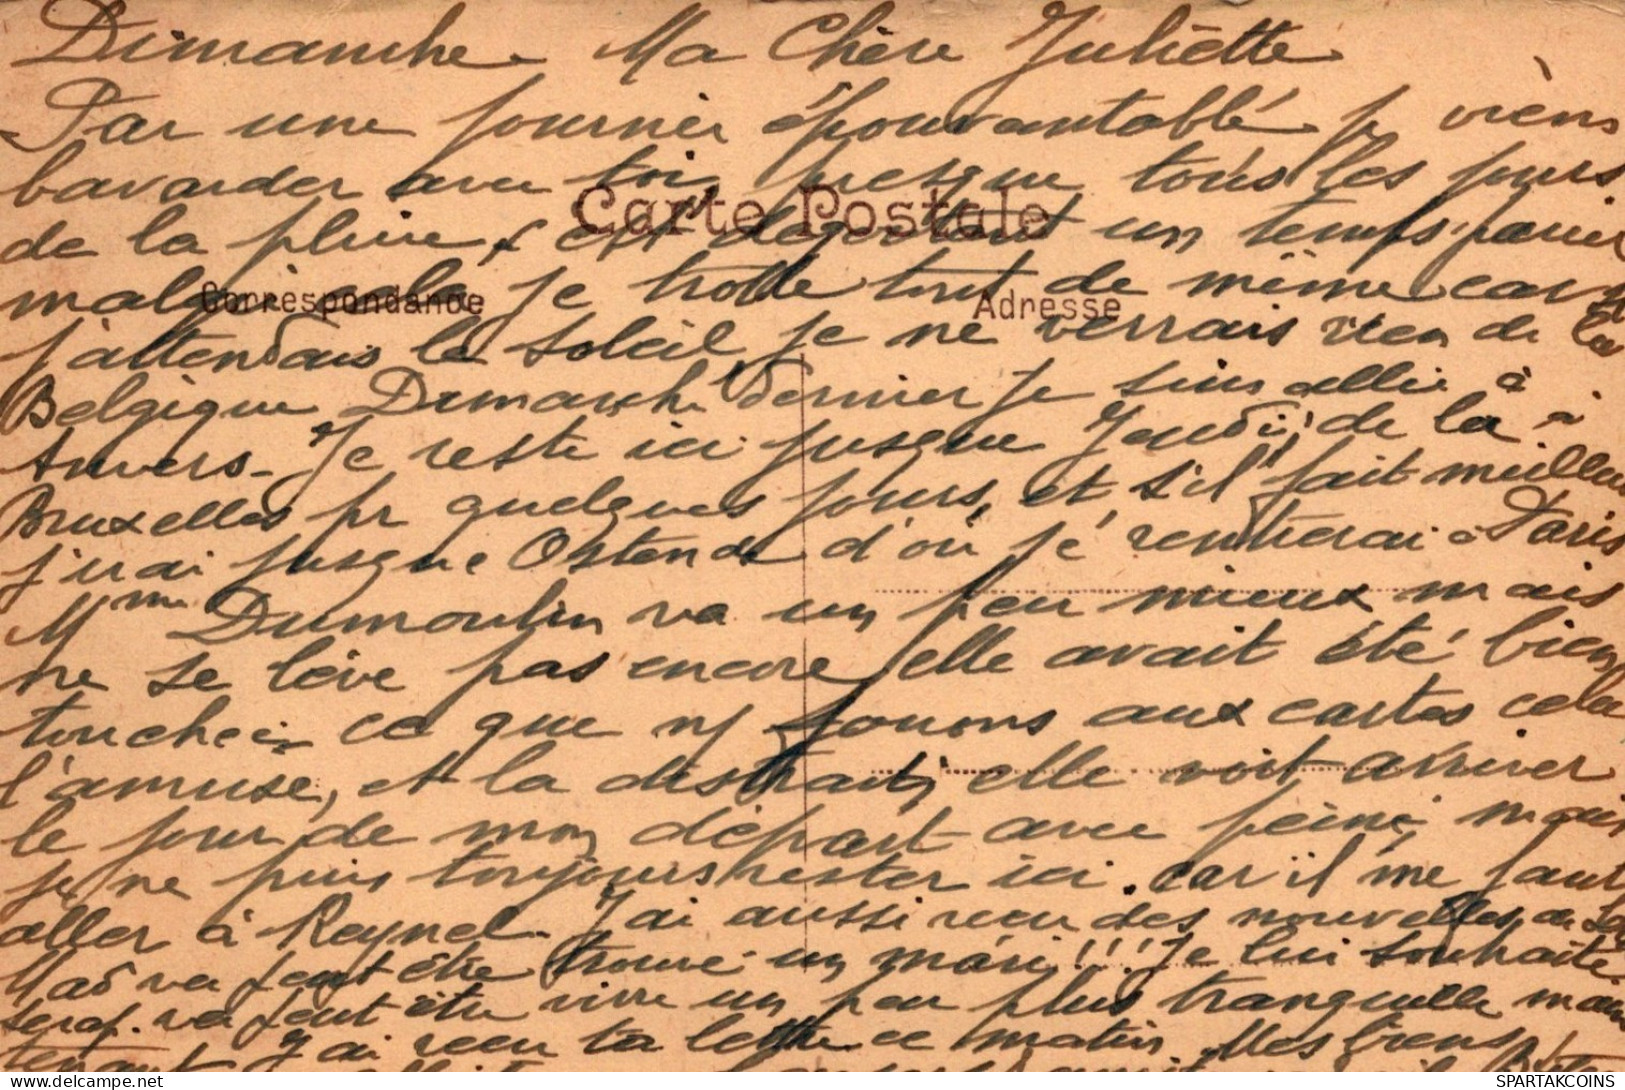 Dimanche. Ma Chère Juliette
Par une journée épouvantable je viens
bavarder avec toi, presque tous les jours
Carte Postale
de la pluie, c'est dégoûtant un temps pareil
malgré cela je trotte tout de même car si
Correspondance
Adresse
j'attendais le soleil je ne verrais rien de la
Belgique Dimanche dernier je suis allée à
Anvers. Je reste ici jusque Jeudi, de là à
Bruxelles pr quelques jours, et s'il fait meilleur
j'irai jusque Ostende d'où je rentrerai à Paris
Mme Dumoulin va un peu mieux mais
ne se lève pas encore, elle avait été bien
touchée ce que ns jouons aux cartes cela
l'amuse, et la distrait, elle voit arriver
le jour de mon départ avec peine, mais
je ne puis toujours rester ici. car il me faut
aller à Reynel. J'ai aussi reçu des nouvelles de
Mad va peut être trouvé un mari!!! Je lui souhaite
va peut être vivre un peu plus tranquille main
tenant J'ai reçu ta lettre ce matin. Mes biens
SPARTAKCOINS